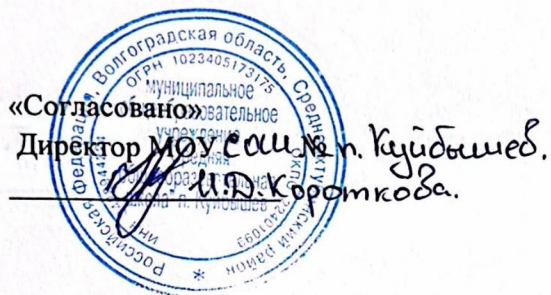 «Согласовано»
Директор МОУ СОШ № п. Куйбышев.
И.D. Короткова.
Российская Федерация, Волгоградская область, Среднеахтубинский район
ОГРН 1023405173175
муниципальное
учреждение
средняя
школа" п. Куйбышев